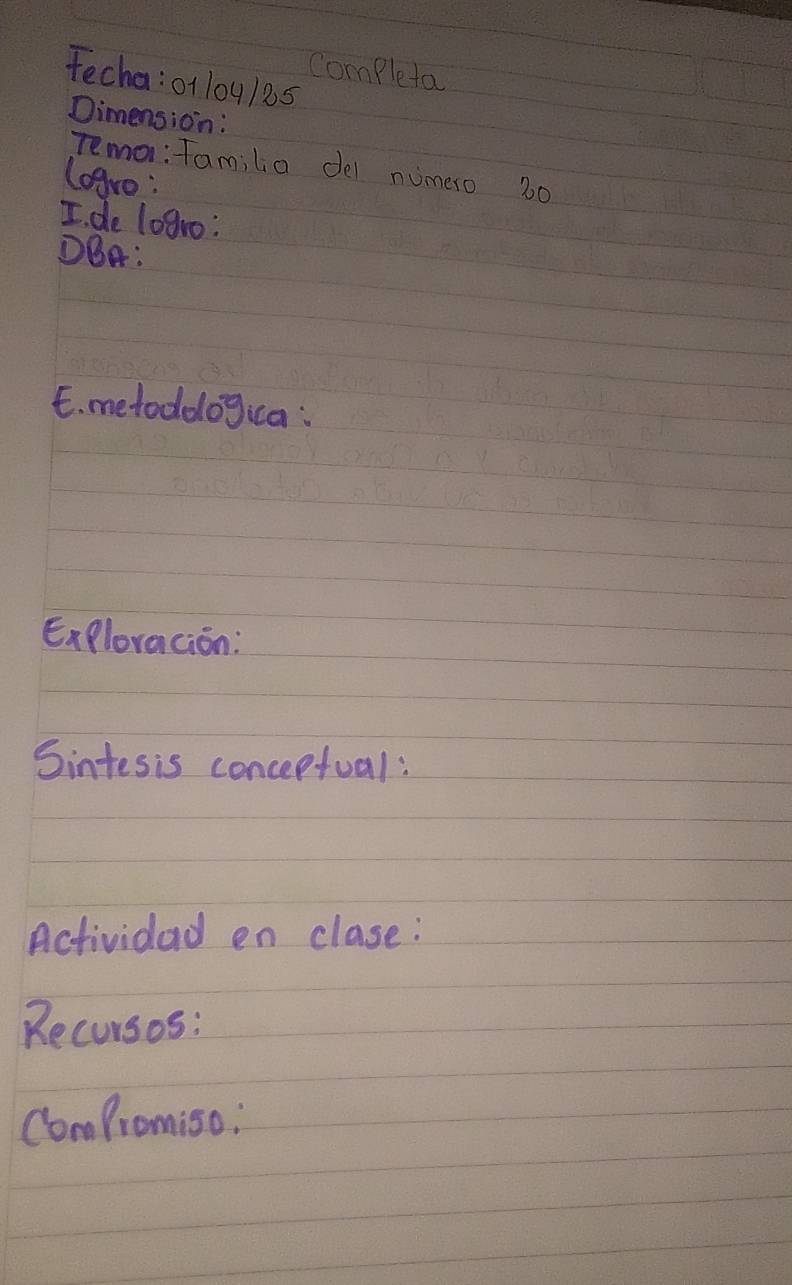 Completa
Fecha: 01/04/25
Dimensión:
Tema: Familia del número 20
Logro:
I. de logro:
DBA:
E. metodologica:
Exploración:
Sintesis conceptual:
Actividad en clase:
Recursos:
Compromiso: